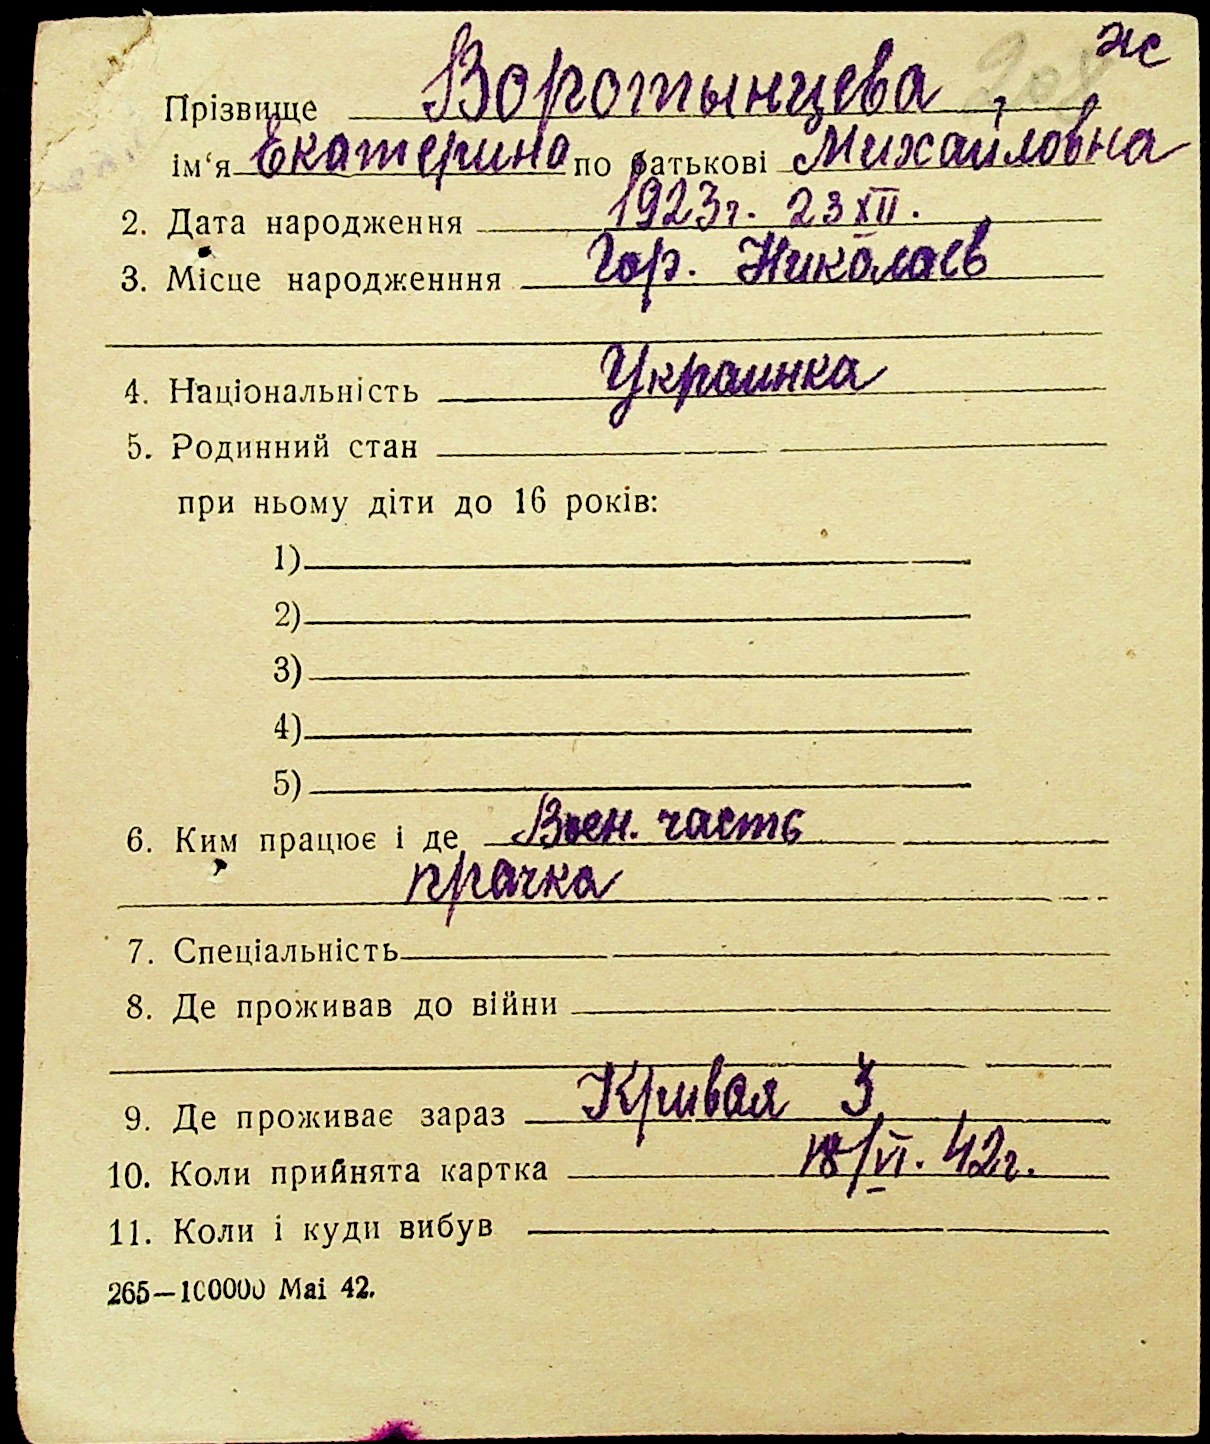 жс
Прізвище Воротынцева
ім‘я Екатерина по батькові Михайловна
2. Дата народження 1923г. 23 XII.
3. Місце народженння Гор. Николаев
4. Національність Украинка
5. Родинний стан
при ньому діти до 16 років:
1)
2)
3)
4)
5)
6. Ким працює і де Воен. часть
прачка
7. Спеціальність
8. Де проживав до війни
9. Де проживає зараз Кривая 3
10. Коли прийнята картка 18/VI. 42г.
11. Коли і куди вибув
265—100000 Mai 42.